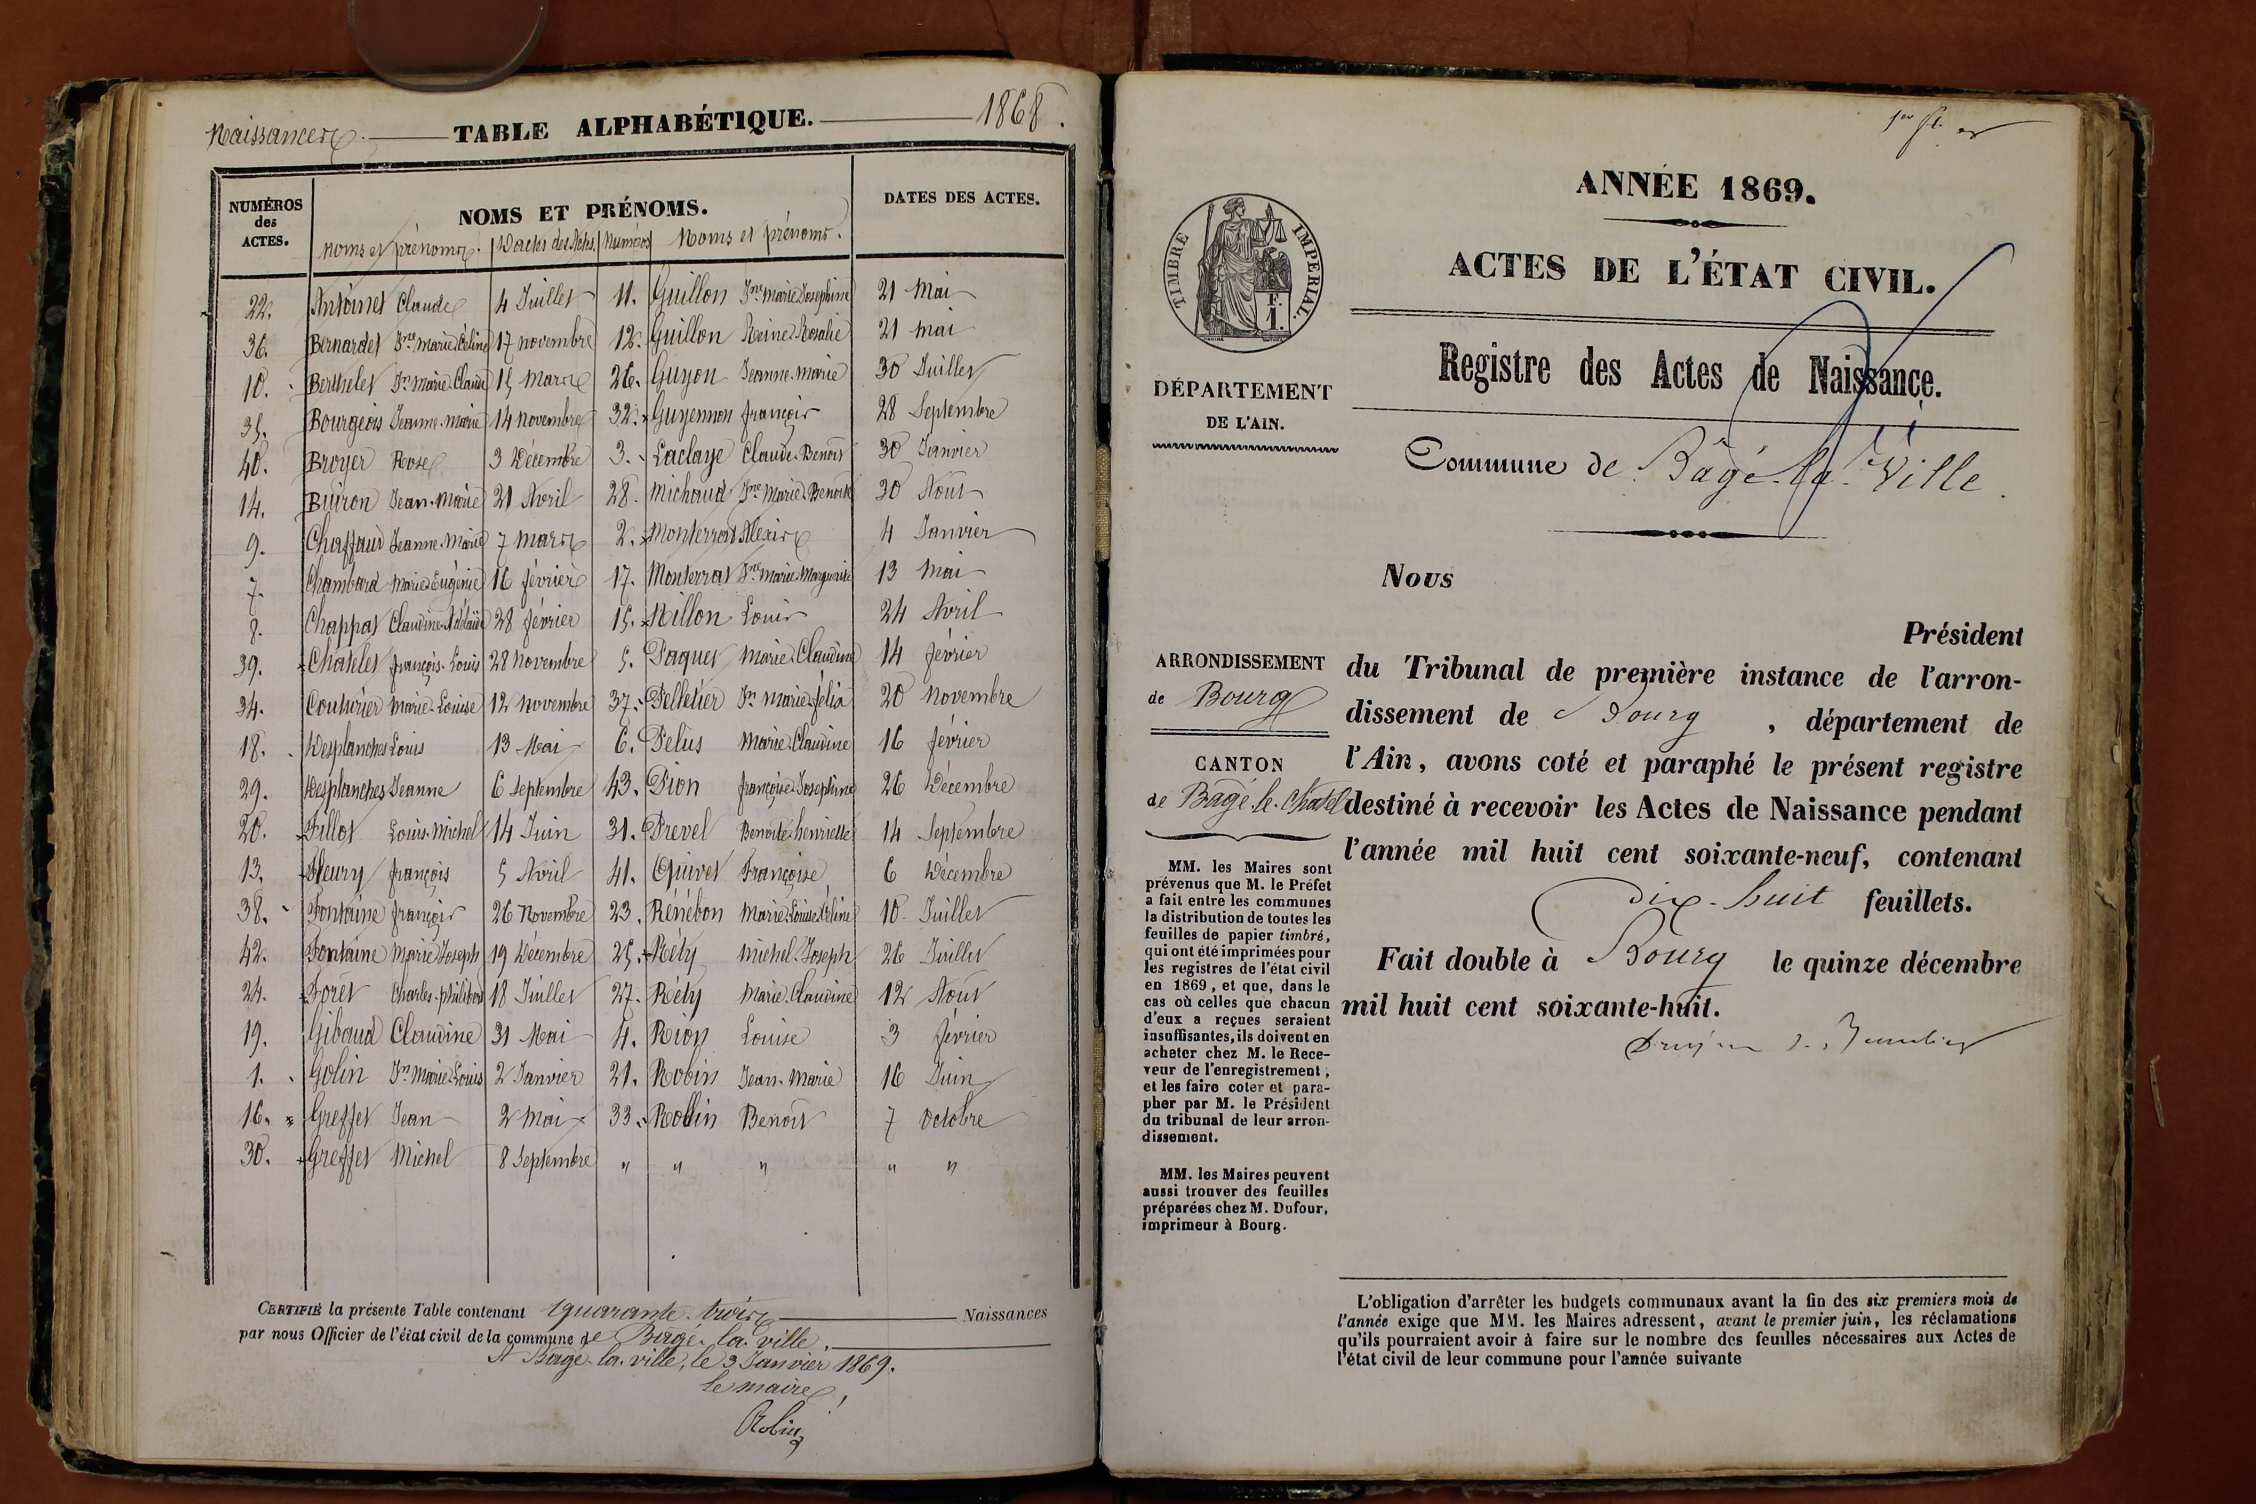 Naissances. TABLE ALPHABÉTIQUE. 1868.
NUMÉROS des ACTES. NOMS ET PRÉNOMS. DATES DES ACTES.
Noms et prénoms. Dactes des Actes. Numéros Noms et prénoms.
22. Antoinet Claude 4 Juillet 11. Guillon Jne Marie Josephine 21 Mai
36. Bernardet Jne Marie Céline 17 novembre 12. Guillon Reine Rosalie 21 mai
10. Berthelet Jn Marie Claude 15 Mars 26. Guyon Jeanne-Marie 30 Juillet
35. Bourgeois Jeanne-Marie 14 novembre 32. Guyennon françois 28 Septembre
40. Broyer Rose 3 Décembre 3. Laclaye Claude-Benoit 30 Janvier
14. Buiron Jean-Marie 21 Avril 28. Michaud Jne Marie Benoite 30 Aout
9. Chaffaud Jeanne-Marie 7 mars 2. Monterrat Alexis 4 Janvier
7. Chambard Marie Eugénie 16 février 17. Monterrat Jne Marie Marguerite 13 Mai
8. Chappat Claudine-Adélaïde 28 février 15. Nillon Louis 24 Avril
39. Chatelet françois-Louis 28 Novembre 5. Paquet Marie-Claudine 14 février
34. Couturier Marie-Louise 12 novembre 37. Pelletier Jn Marie félix 20 novembre
18. Desplanches Louis 13 Mai 6. Pelus Marie Claudine 16 février
29. Desplanches Jeanne 6 Septembre 43. Pion françoise Josephine 26 Décembre
20. Fillot Louis-Michel 14 Juin 31. Prevel Benoite henriette 14 Septembre
13. Fleury françois 5 Avril 41. Quivet Françoise 6 Décembre
38. Fontaine françois 26 Novembre 23. Rénébon Marie Louise Céline 10 Juillet
42. Fontaine Marie Joseph 19 Décembre 25. Réty Michel-Joseph 26 Juillet
24. Foret Charles-philibert 18 Juillet 27. Réty Marie-Claudine 12 Aout
19. Giboud Claudine 31 Mai 4. Rion Louise 3 février
1. Golin Jn Marie Louis 2 Janvier 21. Robin Jean-Marie 16 Juin
16. Greffet Jean 2 Mai 33. Robin Benoit 7 octobre
30. Greffet Michel 8 Septembre " " " " "
CERTIFIÉ la présente Table contenant quarante-trois Naissances
par nous Officier de l'état civil de la commune de Bagé-la-ville.
A Bagé-la-ville, le 3 Janvier 1869.
le maire,
Robin
1er
ANNÉE 1869.
ACTES DE L'ÉTAT CIVIL.
TIMBRE IMPERIAL.
F.
1.
Registre des Actes de Naissance.
DÉPARTEMENT
DE L'AIN.
Commune de Bâgé-la-Ville.
Nous
Président
du Tribunal de première instance de l'arron-
dissement de Bourg, département de
l'Ain, avons coté et paraphé le présent registre
destiné à recevoir les Actes de Naissance pendant
l'année mil huit cent soixante-neuf, contenant
Dix-huit feuillets.
Fait double à Bourg le quinze décembre
mil huit cent soixante-huit.
ARRONDISSEMENT
de Bourg
CANTON
de Bagé-le-Chatel
MM. les Maires sont
prévenus que M. le Préfet
a fait entre les communes
la distribution de toutes les
feuilles de papier timbré,
qui ont été imprimées pour
les registres de l'état civil
en 1869, et que, dans le
cas où celles que chacun
d'eux a reçues seraient
insuffisantes, ils doivent en
acheter chez M. le Rece-
veur de l'enregistrement,
et les faire coter et para-
pher par M. le Président
du tribunal de leur arron-
dissement.
MM. les Maires peuvent
aussi trouver des feuilles
préparées chez M. Dufour,
imprimeur à Bourg.
L'obligation d'arrêter les budgets communaux avant la fin des six premiers mois de
l'année exige que MM. les Maires adressent, avant le premier juin, les réclamations
qu'ils pourraient avoir à faire sur le nombre des feuilles nécessaires aux Actes de
l'état civil de leur commune pour l'année suivante